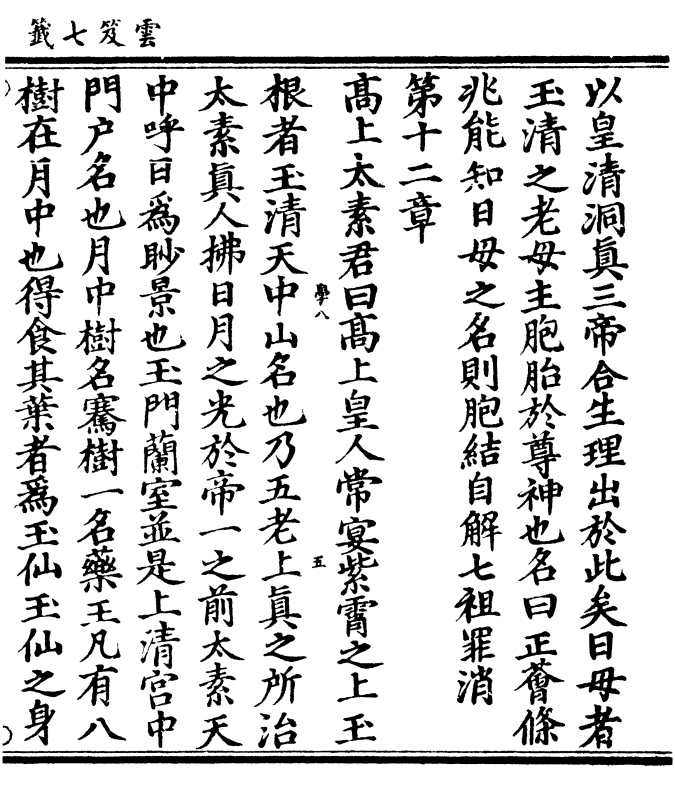 雲笈七籤
以皇清洞真三帝合生理出於此矣日母者
玉清之老母主胞胎於尊神也名曰正薈條
兆能知日母之名則胞結自解七祖罪消
第十二章
髙上太素君曰髙上皇人常宴紫霄之上玉
學八
五
根者玉清天中山名也乃五老上真之所治
太素真人拂日月之光於帝一之前太素天
中呼日爲眇景也玉門蘭室並是上清宫中
門户名也月中樹名騫樹一名藥王凡有八
樹在月中也得食其葉者爲玉仙玉仙之身